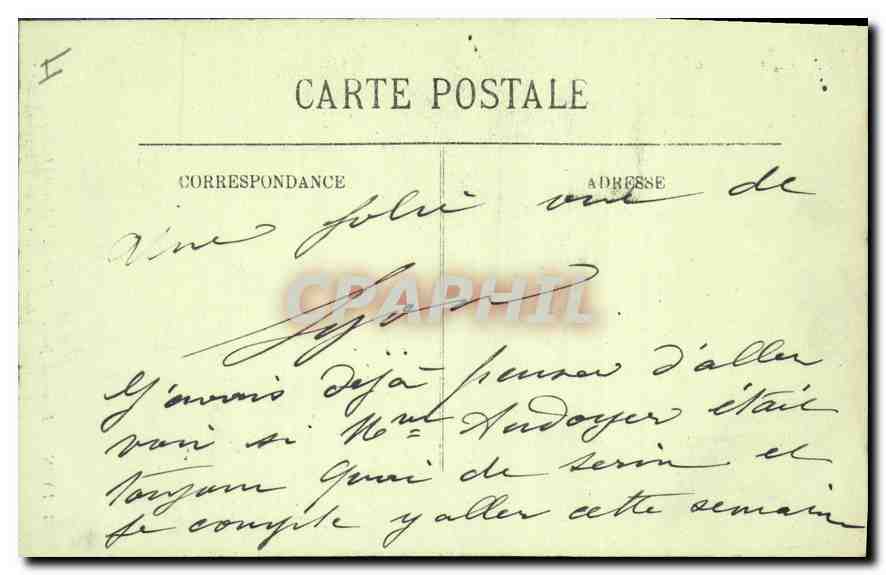 I
CARTE POSTALE
CORRESPONDANCE
ADRESSE
une jolie vue de
Lyon
CPAPHIL
J'avais déjà penser d'aller
voir si Mme Audoyer était
toujour Quai de serin et
je compte y aller cette semaine